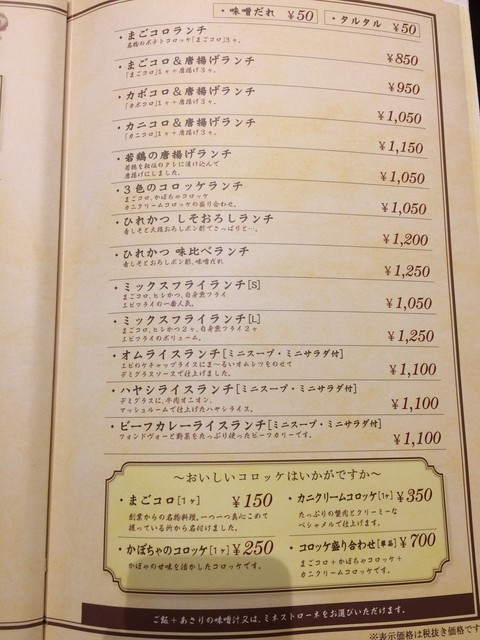 ・味噌だれ ¥50 ・タルタル ¥50
・まごコロランチ ¥850
名物のポテトコロッケ「まごコロ」3ヶ。
・まごコロ＆唐揚げランチ ¥950
「まごコロ」1ヶ＋唐揚げ3ヶ。
・カボコロ＆唐揚げランチ ¥1,050
「カボコロ」1ヶ＋唐揚げ3ヶ。
・カニコロ＆唐揚げランチ ¥1,150
「カニコロ」1ヶ＋唐揚げ3ヶ。
・若鶏の唐揚げランチ ¥1,050
若鶏を秘伝のタレに漬け込んで
唐揚げにしました。
・3色のコロッケランチ ¥1,050
まごコロ、かぼちゃコロッケ
カニクリームコロッケの盛り合わせ。
・ひれかつ しそおろしランチ ¥1,200
青しそと大根おろしポン酢でさっぱりと…。
・ひれかつ 味比べランチ ¥1,250
青しそとおろしポン酢、味噌だれ
・ミックスフライランチ[S] ¥1,050
まごコロ、ヒレかつ、白身魚フライ
エビフライの一番人気。
・ミックスフライランチ[L] ¥1,250
まごコロ、ヒレかつ2ヶ、白身魚フライ2ヶ
エビフライのボリューム。
・オムライスランチ[ミニスープ・ミニサラダ付] ¥1,100
エビのケチャップライスにま〜るいオムレツをのせて
デミグラスソースで仕上げました。
・ハヤシライスランチ[ミニスープ・ミニサラダ付] ¥1,100
デミグラスに、牛肉オニオン、
マッシュルームで仕上げたハヤシライス。
・ビーフカレーライスランチ[ミニスープ・ミニサラダ付] ¥1,100
フォンドヴォーと野菜をたっぷり使ったビーフカリーです。
〜おいしいコロッケはいかがですか〜
・まごコロ[1ヶ] ¥150
創業からの名物料理、一つ一つ真心こめて
握っている所から名付けました。
・カニクリームコロッケ[1ヶ] ¥350
たっぷりの蟹肉とクリーミーな
ベシャメルで仕上げます。
・かぼちゃのコロッケ[1ヶ] ¥250
かぼちゃの甘味を活かしたコロッケです。
・コロッケ盛り合わせ[単品] ¥700
まごコロ＋かぼちゃコロッケ＋
カニクリームコロッケです。
ご飯＋あさりの味噌汁又は、ミネストローネをお選びいただけます。
※表示価格は税抜き価格です